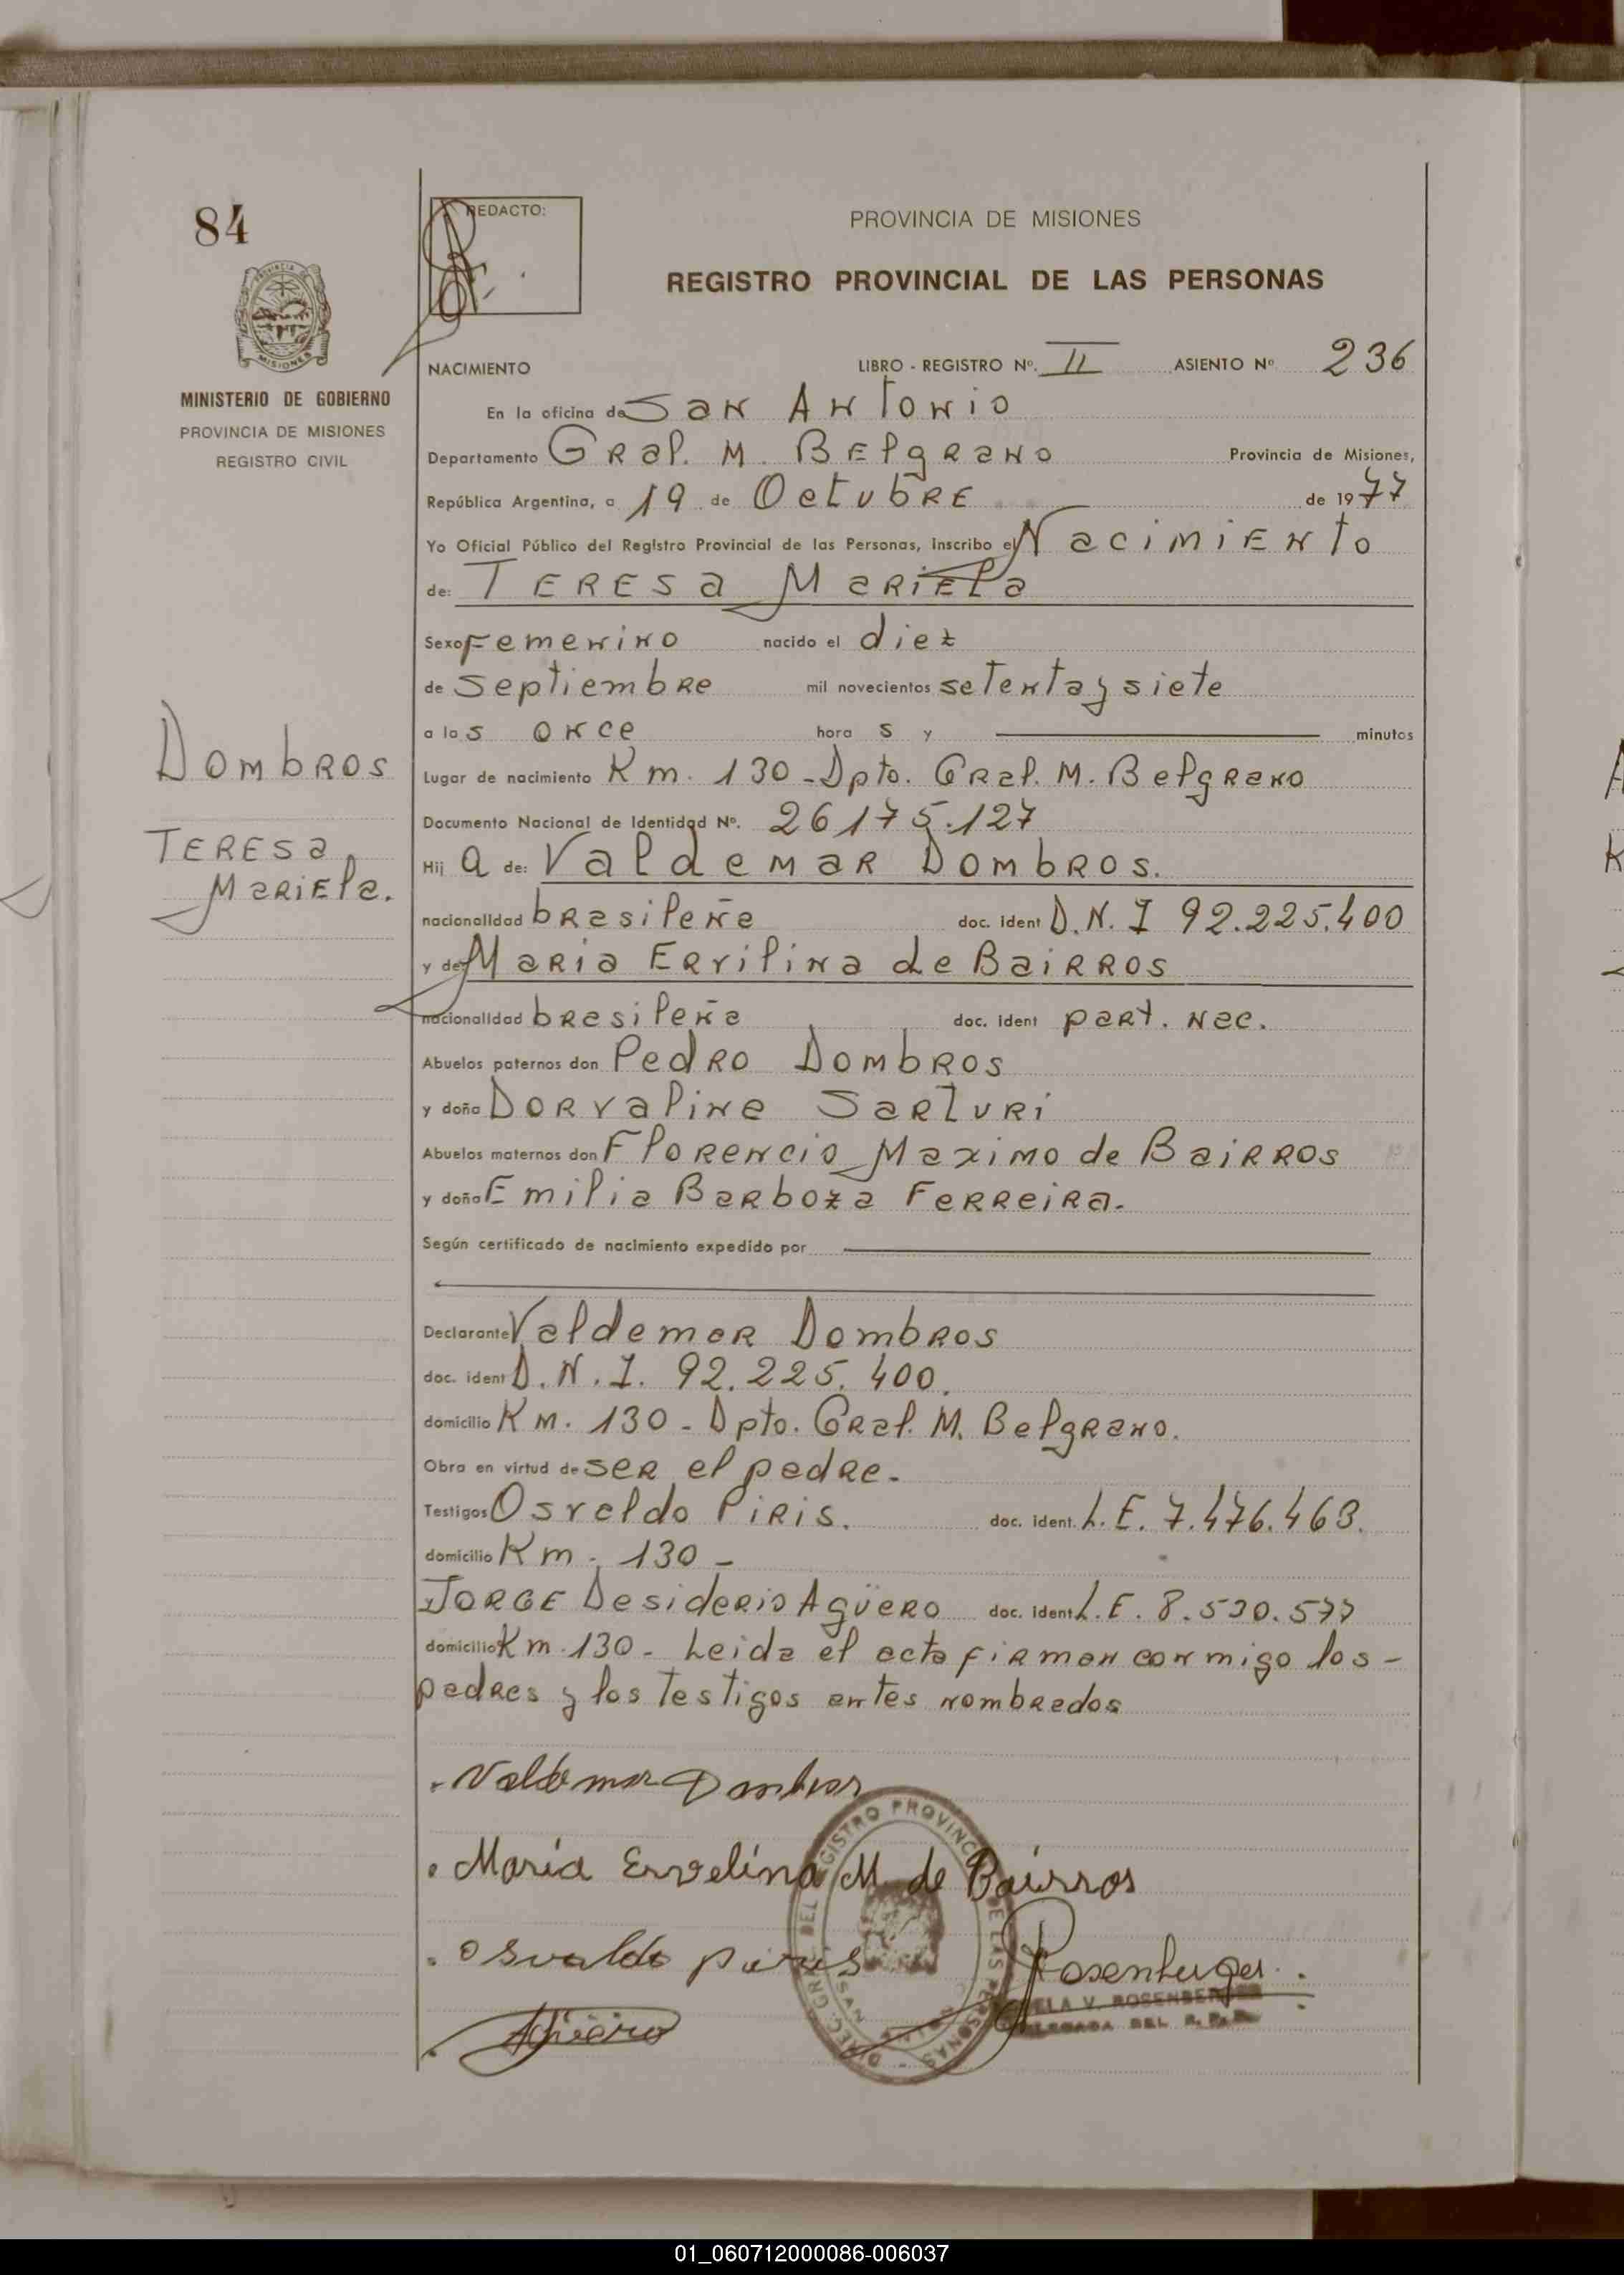 84
REDACTO:
PROVINCIA DE MISIONES
REGISTRO PROVINCIAL DE LAS PERSONAS
MISIONES
MINISTERIO DE GOBIERNO
PROVINCIA DE MISIONES
REGISTRO CIVIL
NACIMIENTO LIBRO - REGISTRO Nº. II ASIENTO Nº 236
En la oficina de San Antonio
Departamento Gral. M. Belgrano Provincia de Misiones,
República Argentina, a 19 de Octubre de 1977
Yo Oficial Público del Registro Provincial de las Personas, inscribo el Nacimiento
de: Teresa Mariela
Sexo Femenino nacido el diez
de septiembre mil novecientos setenta y siete
a las once horas y minutos
Dombros
Teresa
Mariela.
Lugar de nacimiento Km. 130 - Dpto. Gral. M. Belgrano
Documento Nacional de Identidad Nº. 26175.127
Hija de: Valdemar Dombros.
nacionalidad brasileña doc. ident D.N.I 92.225.400
y de Maria Ervilina de Bairros
nacionalidad brasileña doc. ident part. nac.
Abuelos paternos don Pedro Dombros
y doña Dorvalina Sarturi
Abuelos maternos don Florencio Maximo de Bairros
y doña Emilia Barboza Ferreira.
Según certificado de nacimiento expedido por
Declarante Valdemar Dombros
doc. ident D.N.I. 92.225.400.
domicilio Km. 130 - Dpto. Gral. M. Belgrano.
Obra en virtud de ser el padre.
Testigos Osvaldo Piris. doc. ident. L.E. 7.476.463.
domicilio Km. 130 -
Jorge Desiderio Agüero doc. ident. L.E. 8.530.577
domicilio Km. 130 - Leida el acta firman conmigo los -
padres y los testigos antes nombrados
Valdemar Dombros
María Ervelina M. de Bairros
Osvaldo piris
Rosenberger
Agüero
ELA V. ROSENBERGER
DELEGADA DEL R.P.P.
DIREC. GRAL. DEL REGISTRO PROVINCIAL DE LAS PERSONAS
01_060712000086-006037